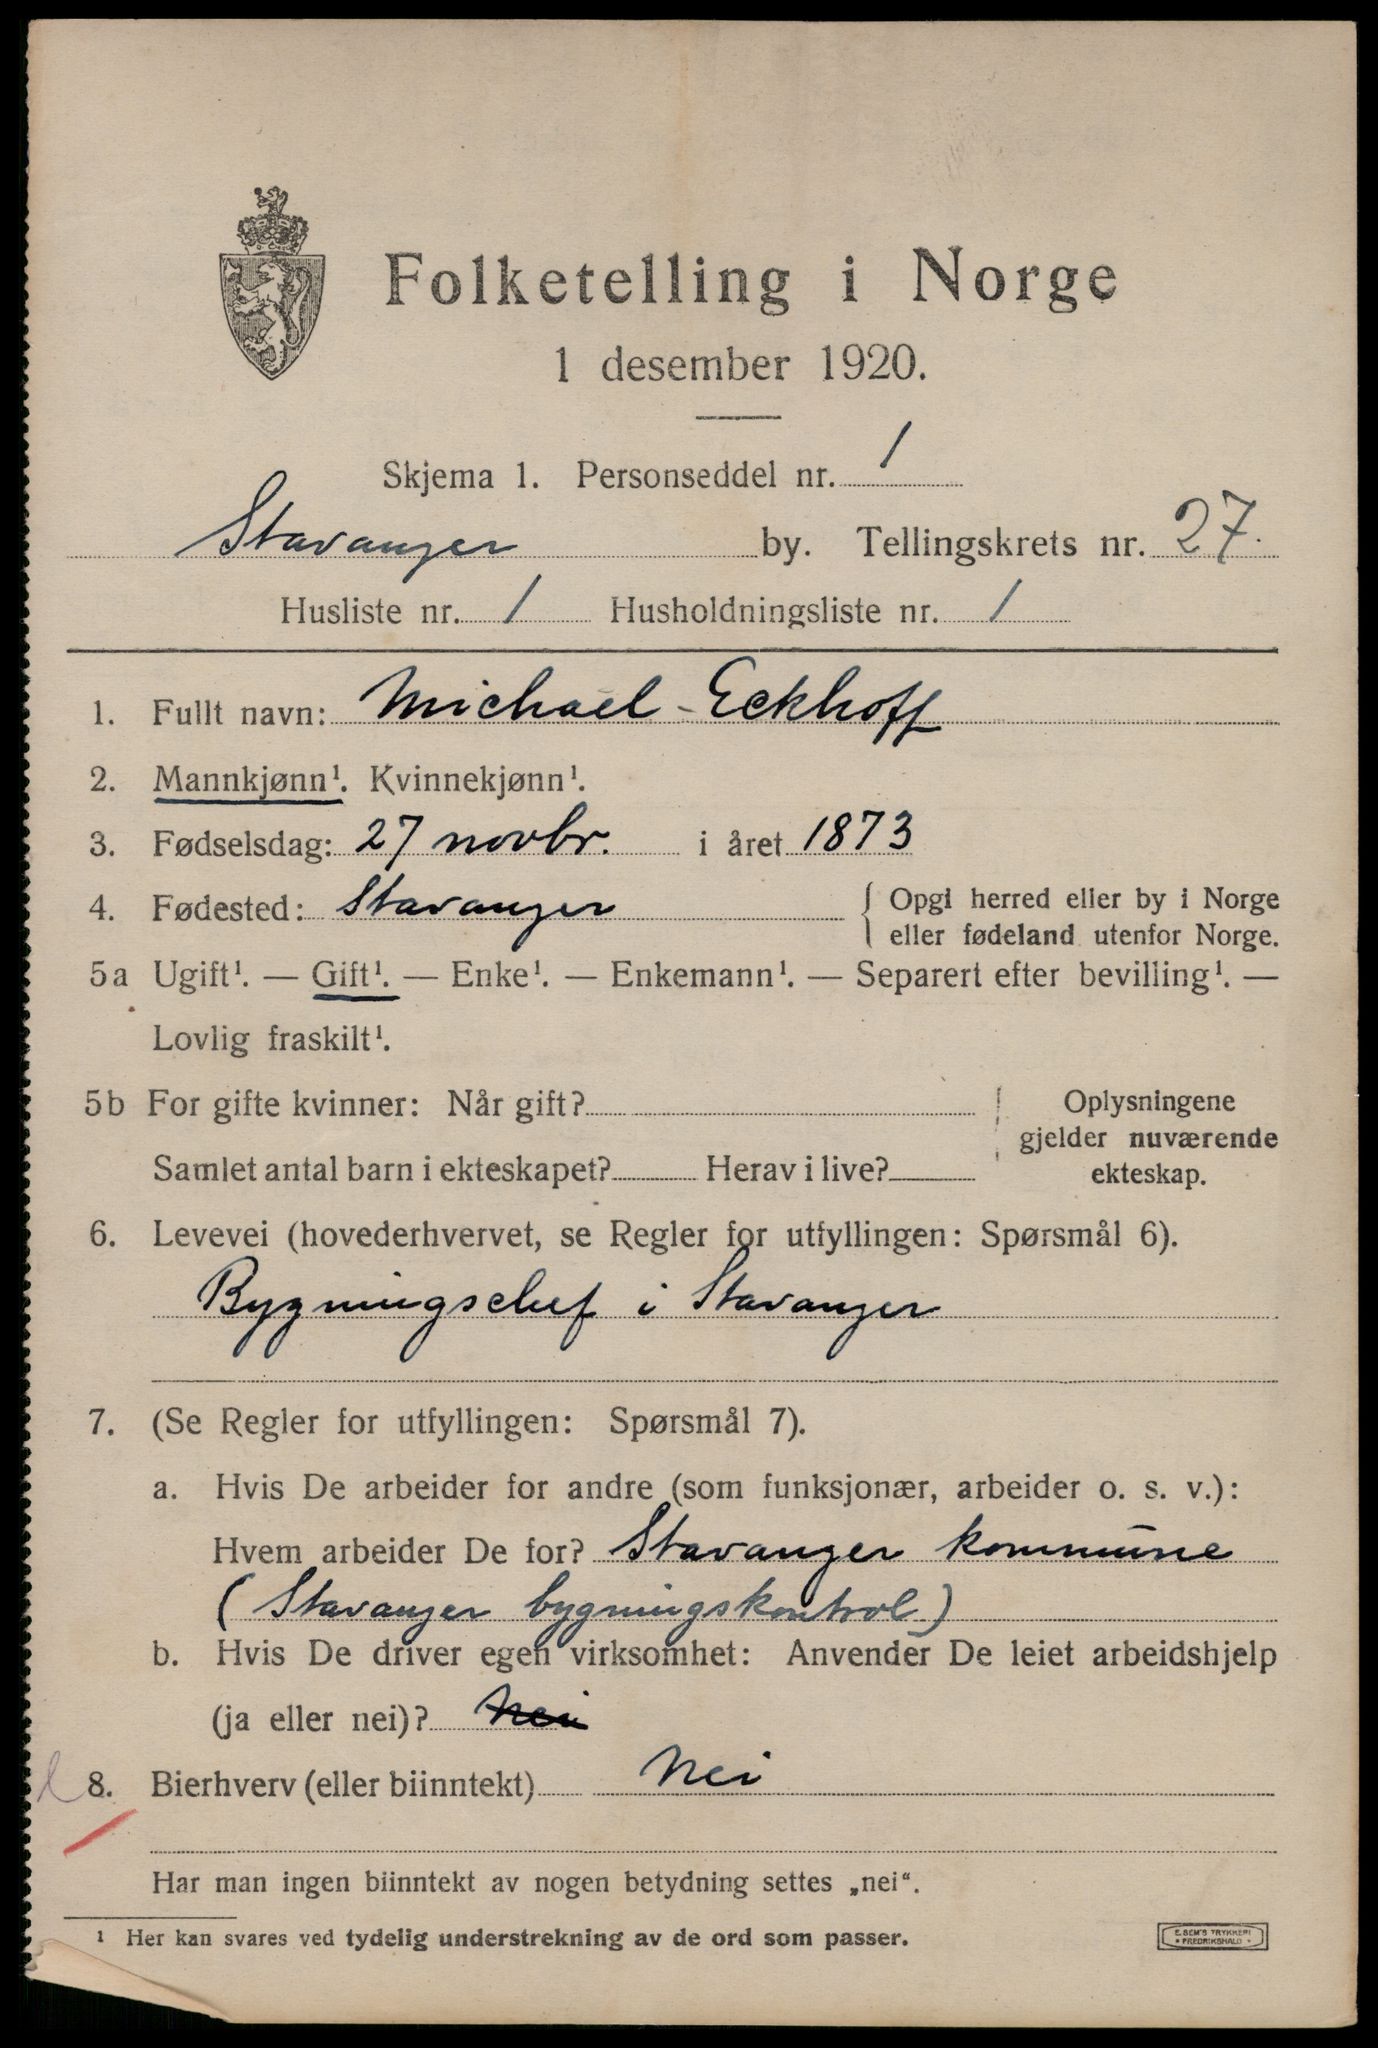 Folketelling i Norge
1 desember 1920.
Skjema 1. Personseddel nr. 1
Stavanger by. Tellingskrets nr. 27.
Husliste nr. 1 Husholdningsliste nr. 1
1. Fullt navn: Michael Eckhoff
2. Mannkjønn¹. Kvinnekjønn¹.
3. Fødselsdag: 27 novbr. i året 1873
4. Fødested: Stavanger { Opgi herred eller by i Norge
eller fødeland utenfor Norge.
5a Ugift¹. — Gift¹. — Enke¹. — Enkemann¹. — Separert efter bevilling¹. —
Lovlig fraskilt¹.
5b For gifte kvinner: Når gift? Oplysningene
gjelder nuværende
Samlet antal barn i ekteskapet? Herav i live? ekteskap.
6. Levevei (hovederhvervet, se Regler for utfyllingen: Spørsmål 6).
Bygningschef i Stavanger
7. (Se Regler for utfyllingen: Spørsmål 7).
a. Hvis De arbeider for andre (som funksjonær, arbeider o. s. v.):
Hvem arbeider De for? Stavanger kommune
(Stavanger bygningskontrol)
b. Hvis De driver egen virksomhet: Anvender De leiet arbeidshjelp
(ja eller nei)? Nei
8. Bierhverv (eller biinntekt) Nei
Har man ingen biinntekt av nogen betydning settes „nei“.
¹ Her kan svares ved tydelig understrekning av de ord som passer.
E. SEM'S TRYKKERI
• FREDRIKSHALD •